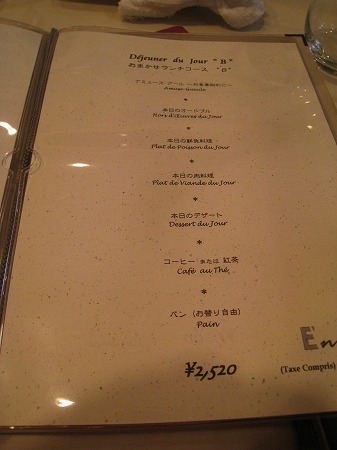 Déjeuner du Jour "B"
おまかせランチコース "B"
Amuse-Gueule
*
本日のオードブル
Hors d'Œuvres du Jour
*
本日の鮮魚料理
Plat de Poisson du Jour
*
本日の肉料理
Plat de Viande du Jour
*
本日のデザート
Dessert du Jour
*
コーヒー または 紅茶
Café au Thé
*
パン (お替り自由)
Pain
¥2,520
(Taxe Compris)